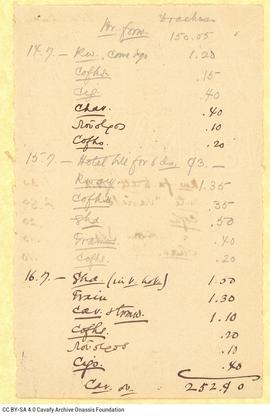 Br. forw.
Drachmas
150.05
14.7. – Rw. 1.20
Coffee .15
Cig. .40
Char. .40
.10
Coffee. .20
15.7 – Hotel bill for 6 ds. 93. –
Rway 1.35
Coffee .35
Sha .50
Frames .40
Coffee. .20
16.7. – Sha (in v. hotel) 1.00
Train 1.30
Car. & tram. 1.10
Coffee .20
.10
Cigs. .40
Car. ov. 252.90
CC BY-SA 4.0 Cavafy Archive Onassis Foundation